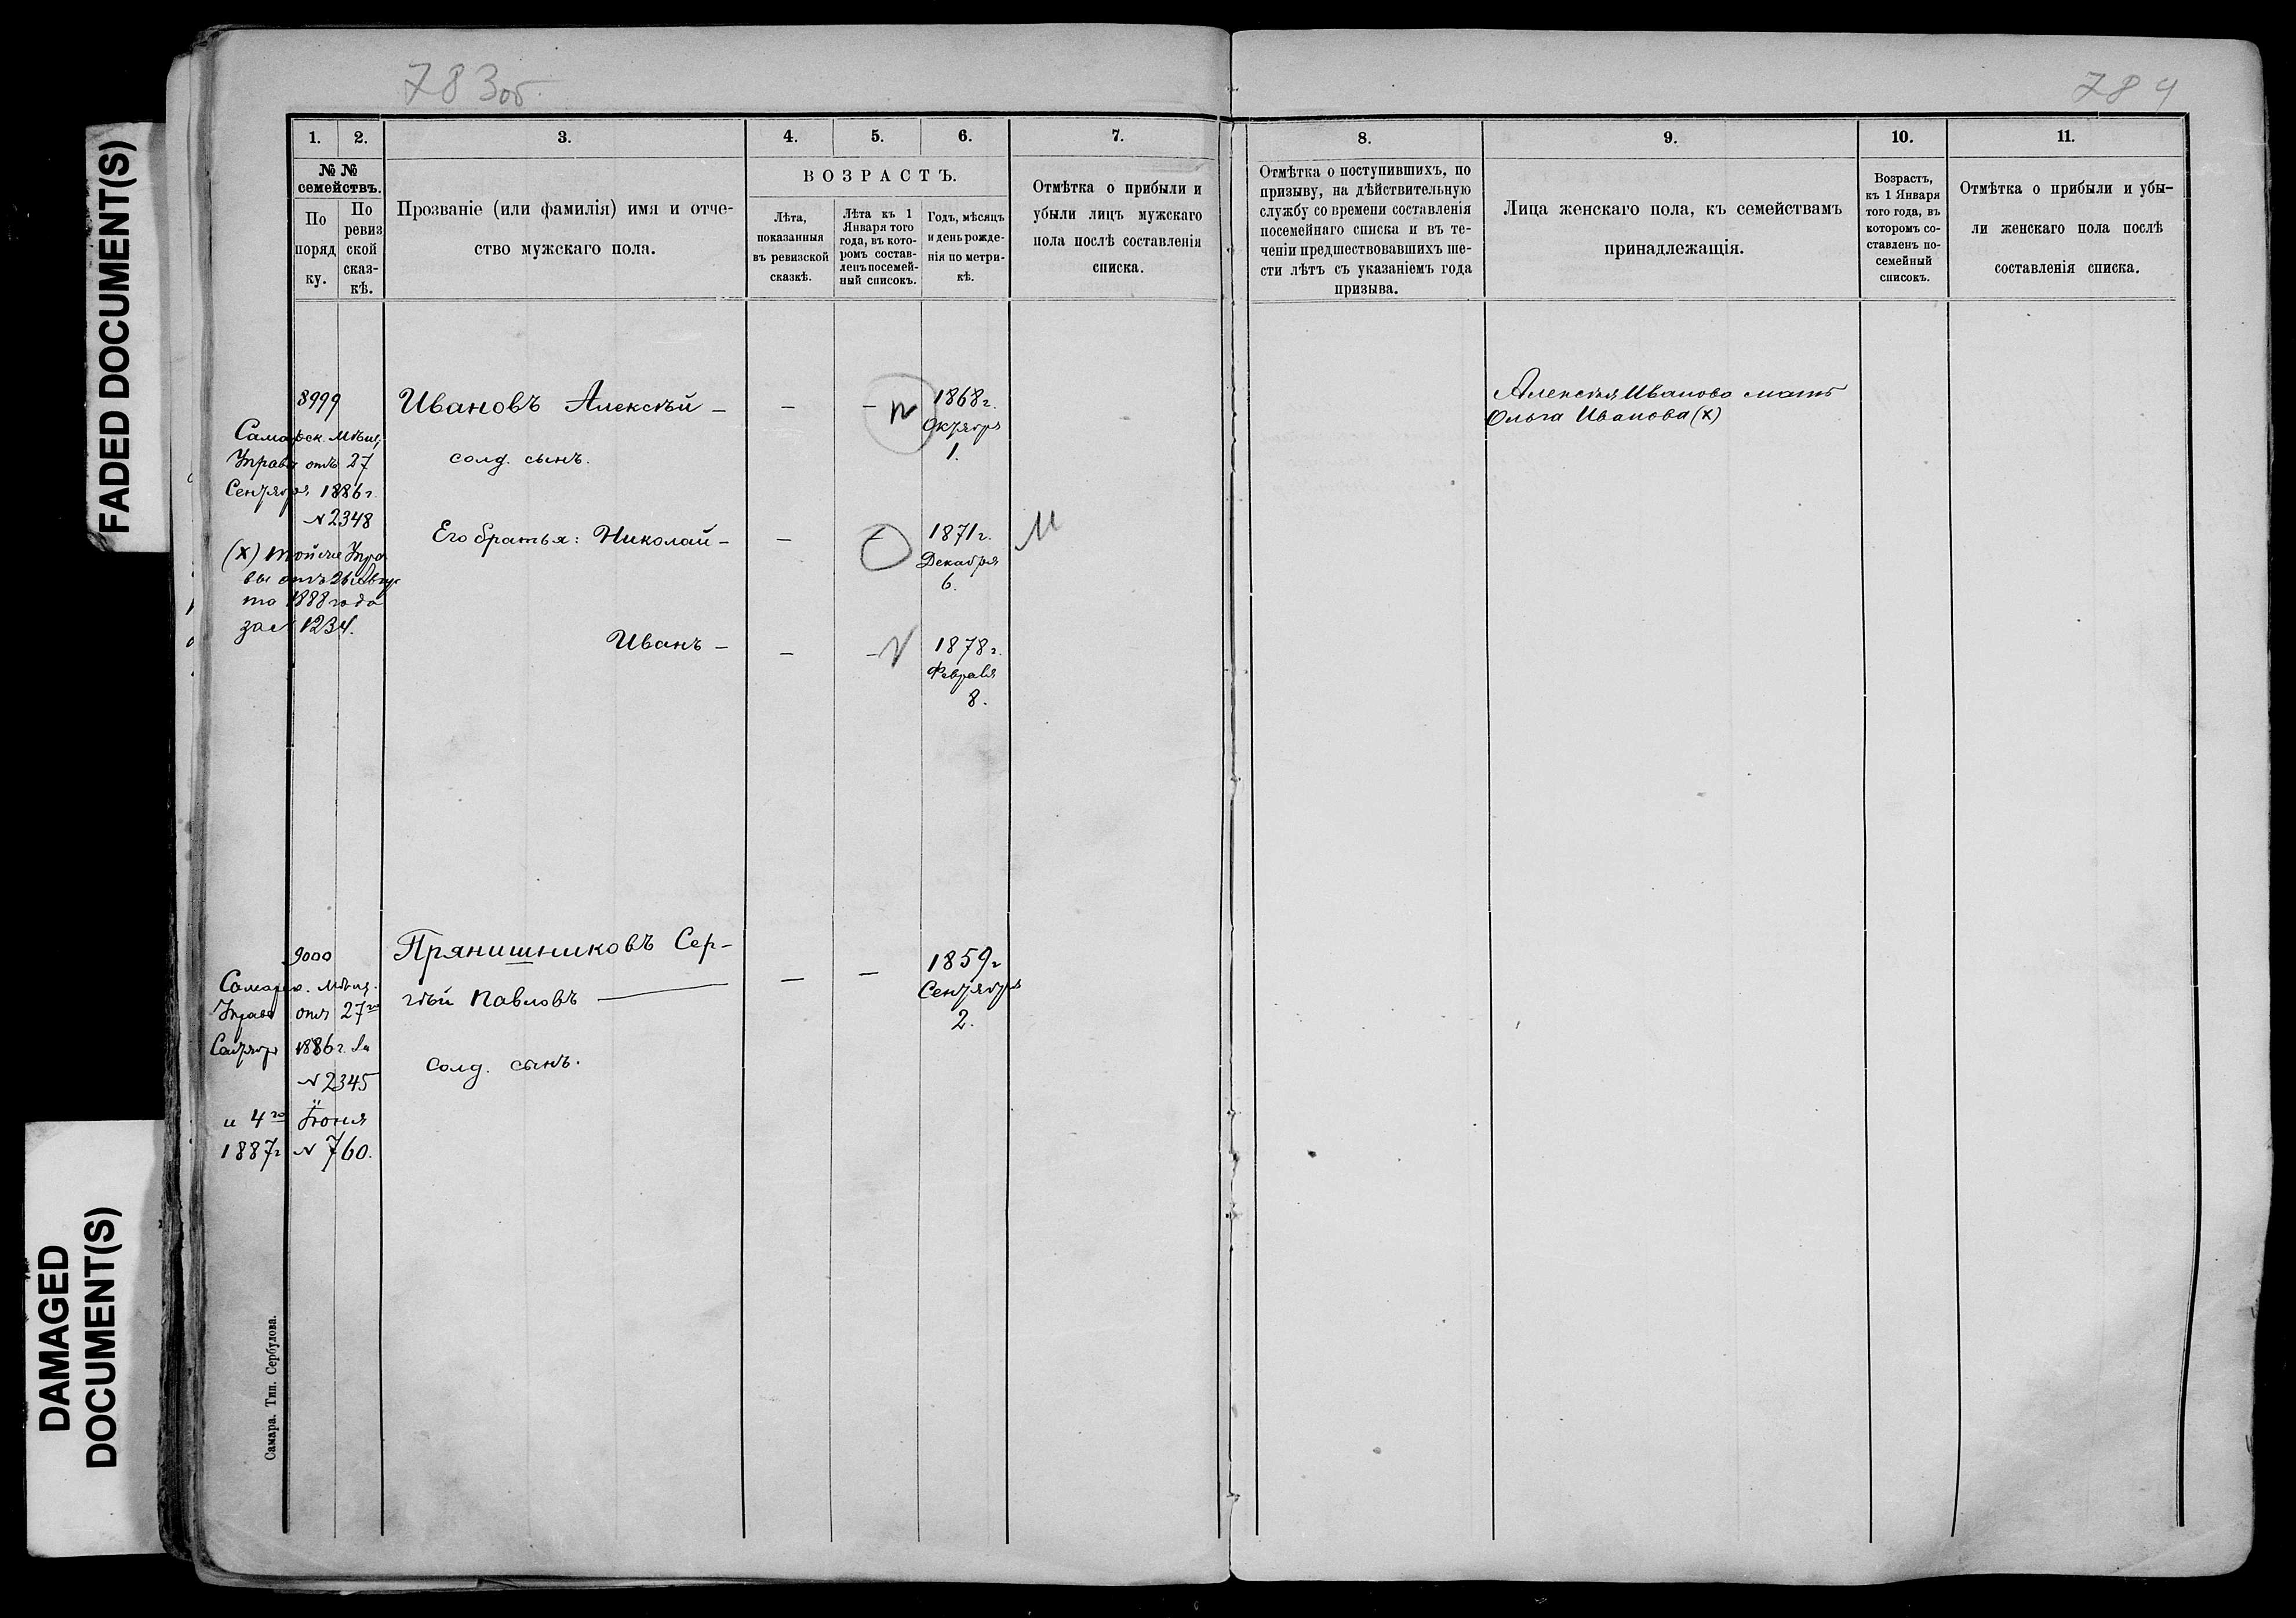 FADED DOCUMENT(S)
DAMAGED
DOCUMENT(S)
783об
784
1. 2. 3. 4. 5. 6. 7.
№ №
семействъ.
По
поряд
ку.
По
ревиз
ской
сказ-
кѣ.
Прозваніе (или фамилія) имя и отче-
ство мужскаго пола.
ВОЗРАСТЪ.
Лѣта,
показанныя
въ ревизской
сказкѣ.
Лѣта къ 1
Января того
года, въ кото-
ромъ состав-
ленъ посемей-
ный списокъ.
Годъ, мѣсяцъ
и день рожде-
нія по метри-
кѣ.
Отмѣтка о прибыли и
убыли лицъ мужскаго
пола послѣ составленія
списка.
8. 9. 10. 11.
Отмѣтка о поступившихъ, по
призыву, на дѣйствительную
службу со времени составленія
посемейнаго списка и въ те-
ченіи предшествовавшихъ ше-
сти лѣтъ съ указаніемъ года
призыва.
Лица женскаго пола, къ семействамъ
принадлежащія.
Возрастъ,
къ 1 Января
того года, въ
которомъ со-
ставленъ по-
семейный
списокъ.
Отмѣтка о прибыли и убы-
ли женскаго пола послѣ
составленія списка.
8999
Самарск. Мѣщ.
Управы отъ 27
Сентября 1886 г.
№ 2348
(х) тойже Упра
вы отъ 26 Авгус
та 1888 года
за № 1234.
Ивановъ Алексѣй - - -
солд. сынъ.
1868 г.
Октября
1.
Его братья: Николай - - -
1871 г.
Декабря
6.
Иванъ - - -
1878 г.
Февраля
8.
Алексѣя Иванова мать
Ольга Иванова (х)
9000
Самарск. Мѣщ.
Управы отъ 27го
Сентября 1886 г. за
№ 2345
и 4го Іюня
1887 г № 760.
Прянишниковъ Сер-
гѣй Павловъ — - -
солд. сынъ.
1859 г
Сентября
2.
Самара. Тип. Сербулова.